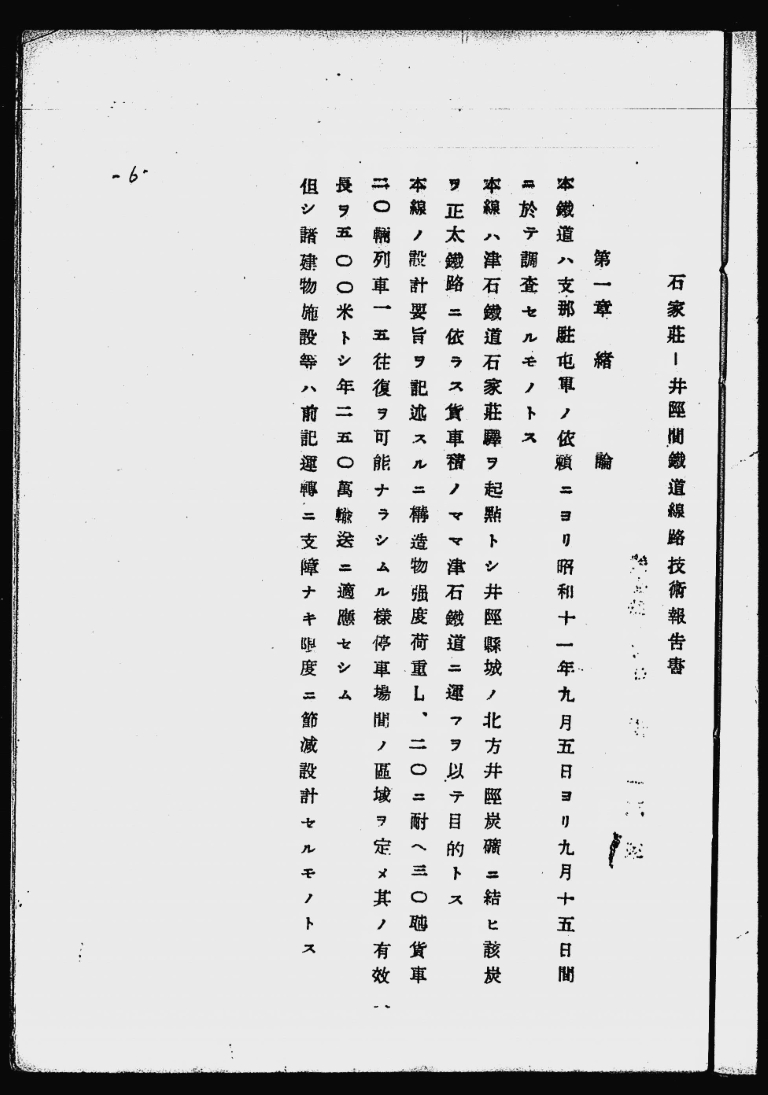 石家莊ー井陘間鐵道線路技術報告書
第一章 緒 論
本鐵道ハ支那駐屯軍ノ依賴ニヨリ昭和十一年九月五日ヨリ九月十五日間
ニ於テ調査セルモノトス
本線ハ津石鐵道石家莊驛ヲ起點トシ井陘縣城ノ北方井陘炭礦ニ結ヒ該炭
ヲ正太鐵路ニ依ラス貨車積ノママ津石鐵道ニ運フヲ以テ目的トス
本線ノ設計要旨ヲ記述スルニ構造物强度荷重L、二〇ニ耐ヘ三〇瓲貨車
二〇輛列車一五往復ヲ可能ナラシムル樣停車場間ノ區域ヲ定メ其ノ有效
長ヲ五〇〇米トシ年二五〇萬輸送ニ適應セシム
但シ諸建物施設等ハ前記運轉ニ支障ナキ限度ニ節減設計セルモノトス
-6-